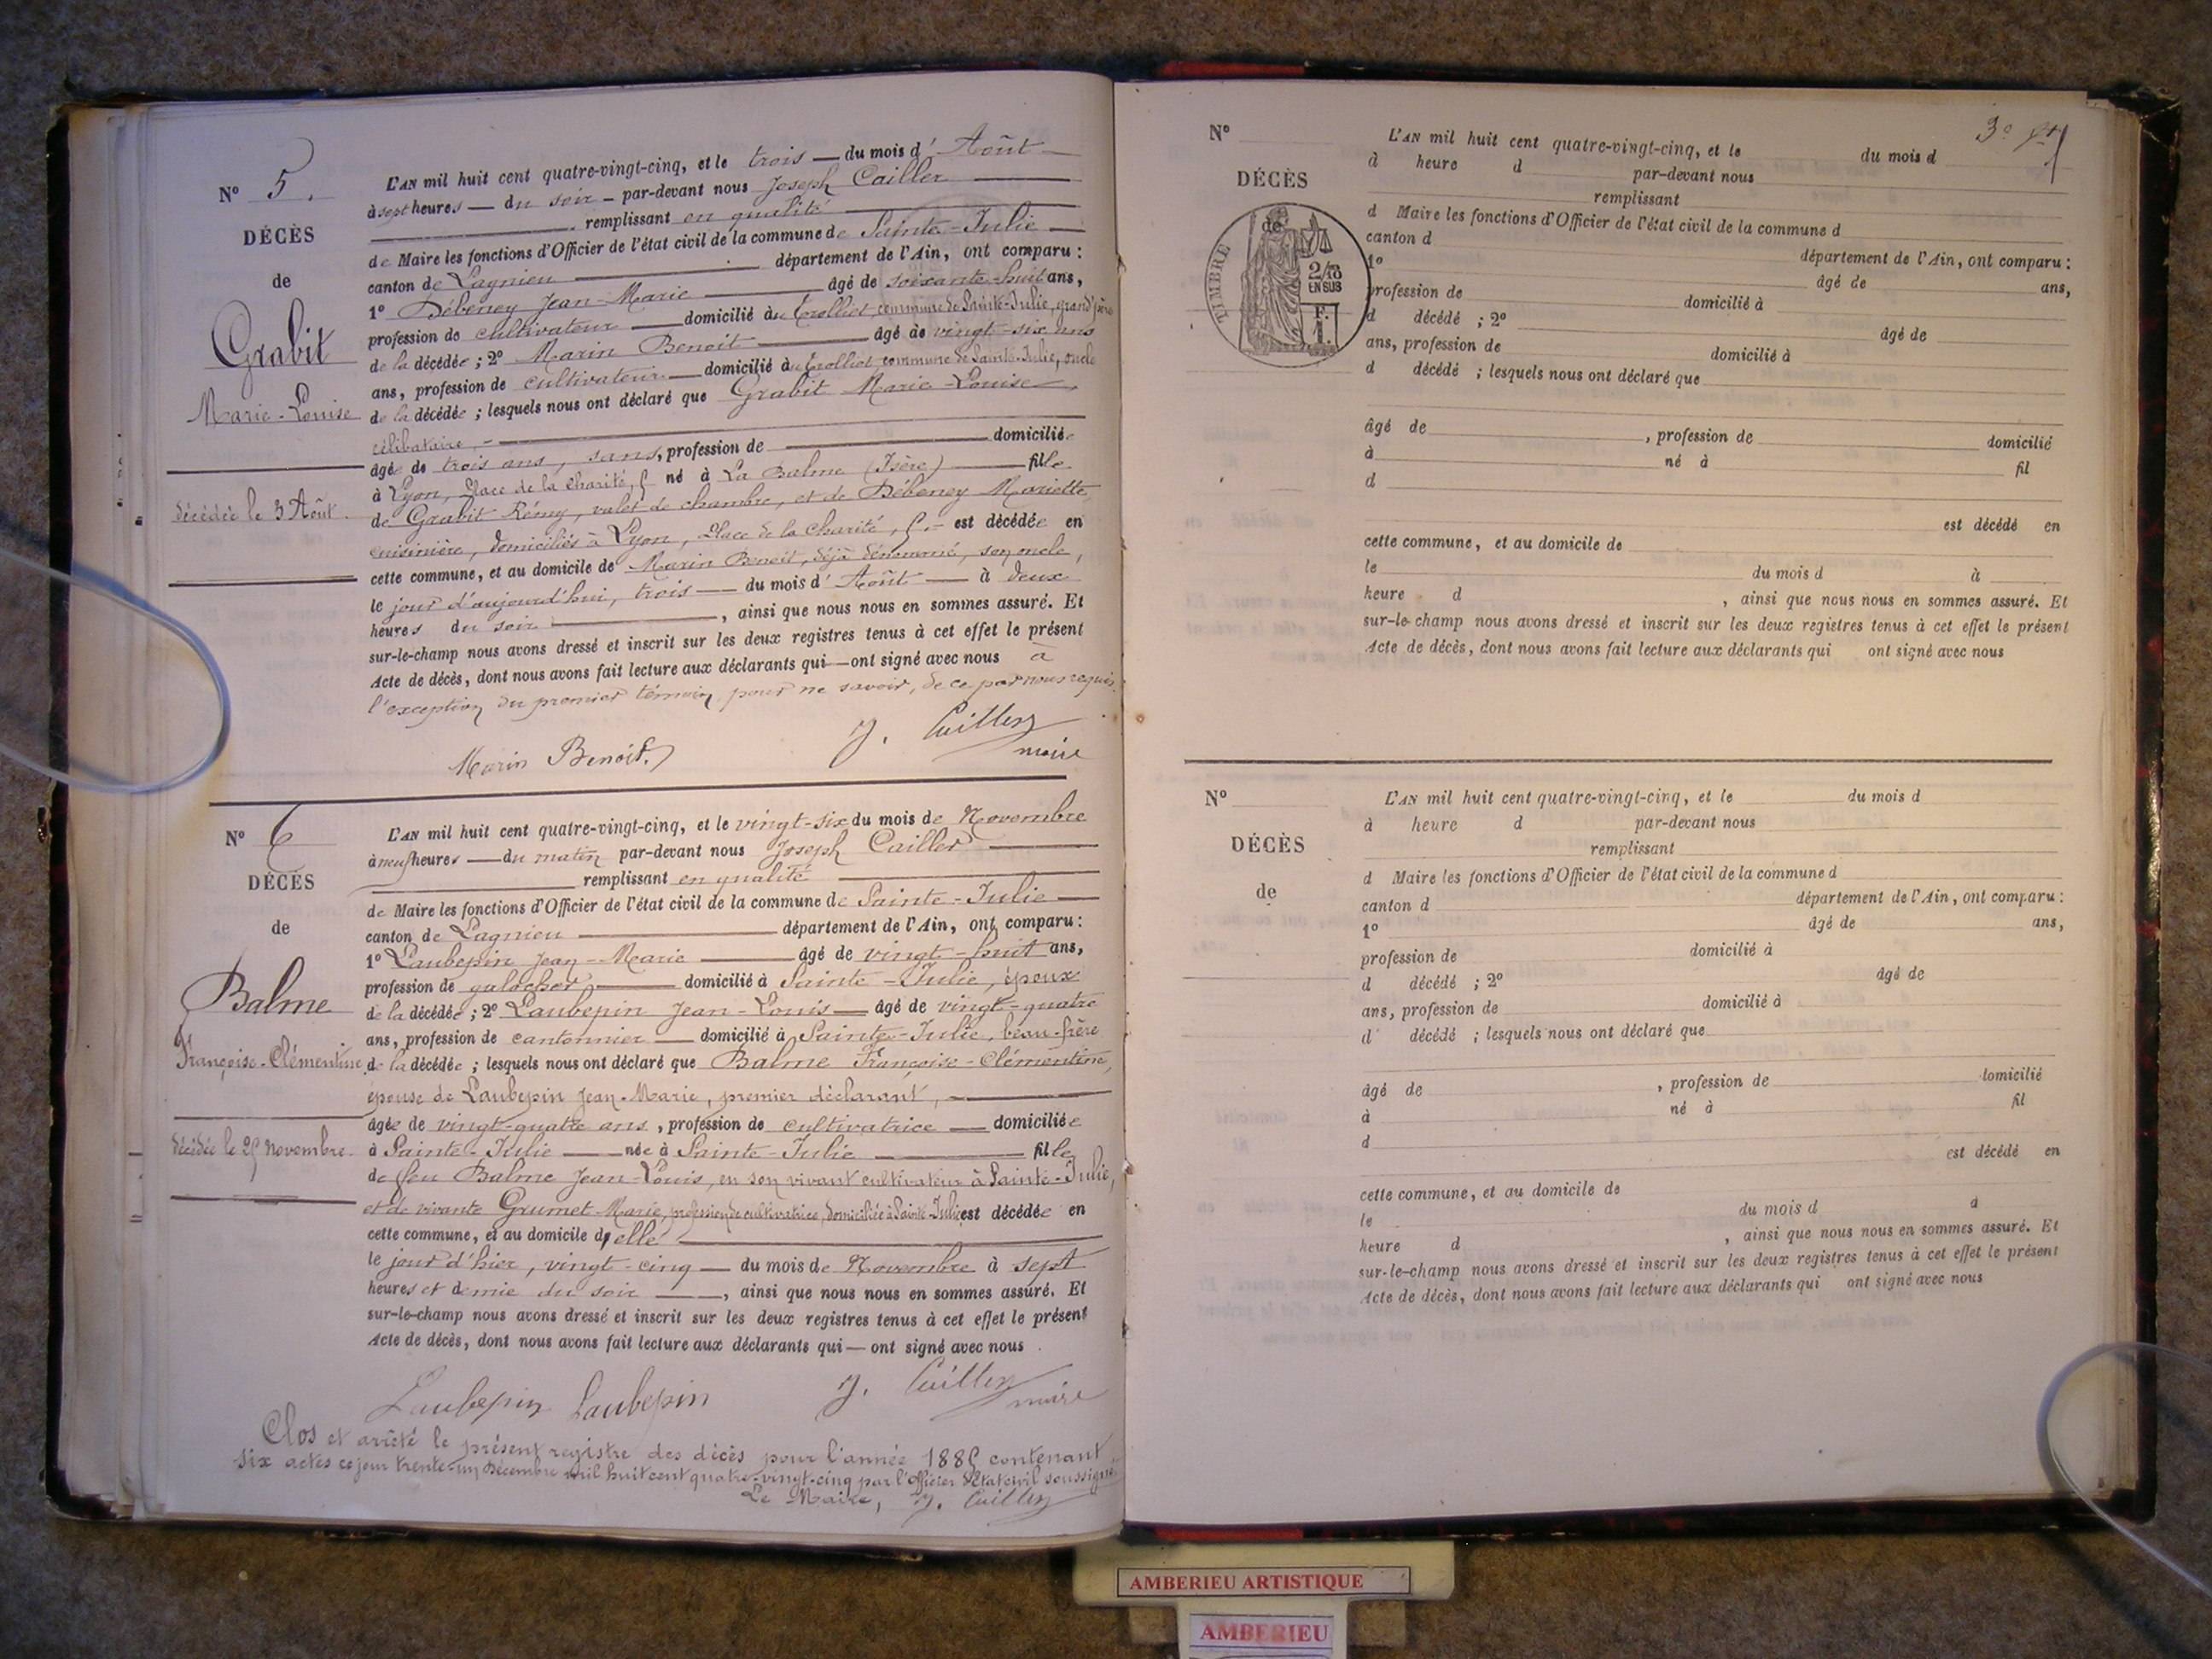 N° 5.
DÉCÈS
de
Grabit
Marie-Louise
décédée le 3 Août.
L'AN mil huit cent quatre-vingt-cinq, et le trois — du mois d'Août —
à sept heures — du soir — par-devant nous Joseph Cailler
remplissant en qualité
de Maire les fonctions d'Officier de l'état civil de la commune de Sainte-Julie
canton de Lagnieu — département de l'Ain, ont comparu :
1° Débeney Jean-Marie — âgé de soixante-huit ans,
profession de cultivateur — domicilié au Trolliet, commune de Sainte-Julie, grand'père
de la décédée ; 2° Marin Benoit — âgé de vingt-six ans
ans, profession de cultivateur — domicilié au Trolliet, commune de Sainte-Julie, oncle
de la décédée ; lesquels nous ont déclaré que Grabit Marie-Louise,
célibataire, —
âgée de trois ans, sans, profession de — domiciliée
à Lyon, Place de la Charité, 5 né à La Balme (Isère) — fille
de Grabit Rémy, valet de chambre, et de Débeney Mariette,
cuisinière, domiciliés à Lyon, Place de la Charité, 5. — est décédée en
cette commune, et au domicile de Marin Benoit, déjà dénommé, son oncle,
le jour d'aujourd'hui, trois — du mois d'Août — à deux
heures du soir —, ainsi que nous nous en sommes assuré. Et
sur-le-champ nous avons dressé et inscrit sur les deux registres tenus à cet effet le présent
Acte de décès, dont nous avons fait lecture aux déclarants qui — ont signé avec nous à
l'exception du premier témoin pour ne savoir, de ce par nous requis.
Marin Benoit. J. Cailler
maire
N° 6
DÉCÈS
de
Balme
Françoise-Clémentine
décédée le 25 Novembre.
L'AN mil huit cent quatre-vingt-cinq, et le vingt-six du mois de Novembre
à neuf heures — du matin par-devant nous Joseph Cailler
remplissant en qualité
de Maire les fonctions d'Officier de l'état civil de la commune de Sainte-Julie
canton de Lagnieu — département de l'Ain, ont comparu :
1° Laubepin Jean-Marie — âgé de vingt-huit ans,
profession de galocher — domicilié à Sainte-Julie, époux
de la décédée ; 2° Laubepin Jean-Louis — âgé de vingt-quatre
ans, profession de cantonnier — domicilié à Sainte-Julie, beau-frère
de la décédée ; lesquels nous ont déclaré que Balme Françoise-Clémentine,
épouse de Laubepin Jean-Marie, premier déclarant, —
âgée de vingt-quatre ans, profession de cultivatrice — domiciliée
à Sainte-Julie — née à Sainte-Julie — fille
de feu Balme Jean-Louis, en son vivant cultivateur à Sainte-Julie,
et de vivante Grumet Marie, profession de cultivatrice, domiciliée à Sainte-Julie est décédée en
cette commune, et au domicile d'elle —
le jour d'hier, vingt-cinq — du mois de Novembre à sept
heures et demie du soir —, ainsi que nous nous en sommes assuré. Et
sur-le-champ nous avons dressé et inscrit sur les deux registres tenus à cet effet le présent
Acte de décès, dont nous avons fait lecture aux déclarants qui — ont signé avec nous.
Laubepin Laubepin J. Cailler
maire
Clos et arrêté le présent registre des décès pour l'année 1885 contenant
six actes ce jour trente-un Décembre mil huit cent quatre-vingt-cinq par l'Officier d'Etat civil soussigné.
Le Maire, J. Cailler
3e
N°
DÉCÈS
de
TIMBRE
2/10
EN SUS
1 F.
L'AN mil huit cent quatre-vingt-cinq, et le du mois d
à heure d par-devant nous
remplissant
d Maire les fonctions d'Officier de l'état civil de la commune d
canton d département de l'Ain, ont comparu :
1° âgé de ans,
profession de domicilié à
d décédé ; 2° âgé de
ans, profession de domicilié à
d décédé ; lesquels nous ont déclaré que
âgé de , profession de domicilié
à né à fil
d
est décédé en
cette commune, et au domicile de
le du mois d à
heure d , ainsi que nous nous en sommes assuré. Et
sur-le-champ nous avons dressé et inscrit sur les deux registres tenus à cet effet le présent
Acte de décès, dont nous avons fait lecture aux déclarants qui ont signé avec nous
N°
DÉCÈS
de
L'AN mil huit cent quatre-vingt-cinq, et le du mois d
à heure d par-devant nous
remplissant
d Maire les fonctions d'Officier de l'état civil de la commune d
canton d département de l'Ain, ont comparu :
1° âgé de ans,
profession de domicilié à
d décédé ; 2° âgé de
ans, profession de domicilié à
d décédé ; lesquels nous ont déclaré que
âgé de , profession de domicilié
à né à fil
d
est décédé en
cette commune, et au domicile de
le du mois d à
heure d , ainsi que nous nous en sommes assuré. Et
sur-le-champ nous avons dressé et inscrit sur les deux registres tenus à cet effet le présent
Acte de décès, dont nous avons fait lecture aux déclarants qui ont signé avec nous
AMBERIEU ARTISTIQUE
AMBERIEU